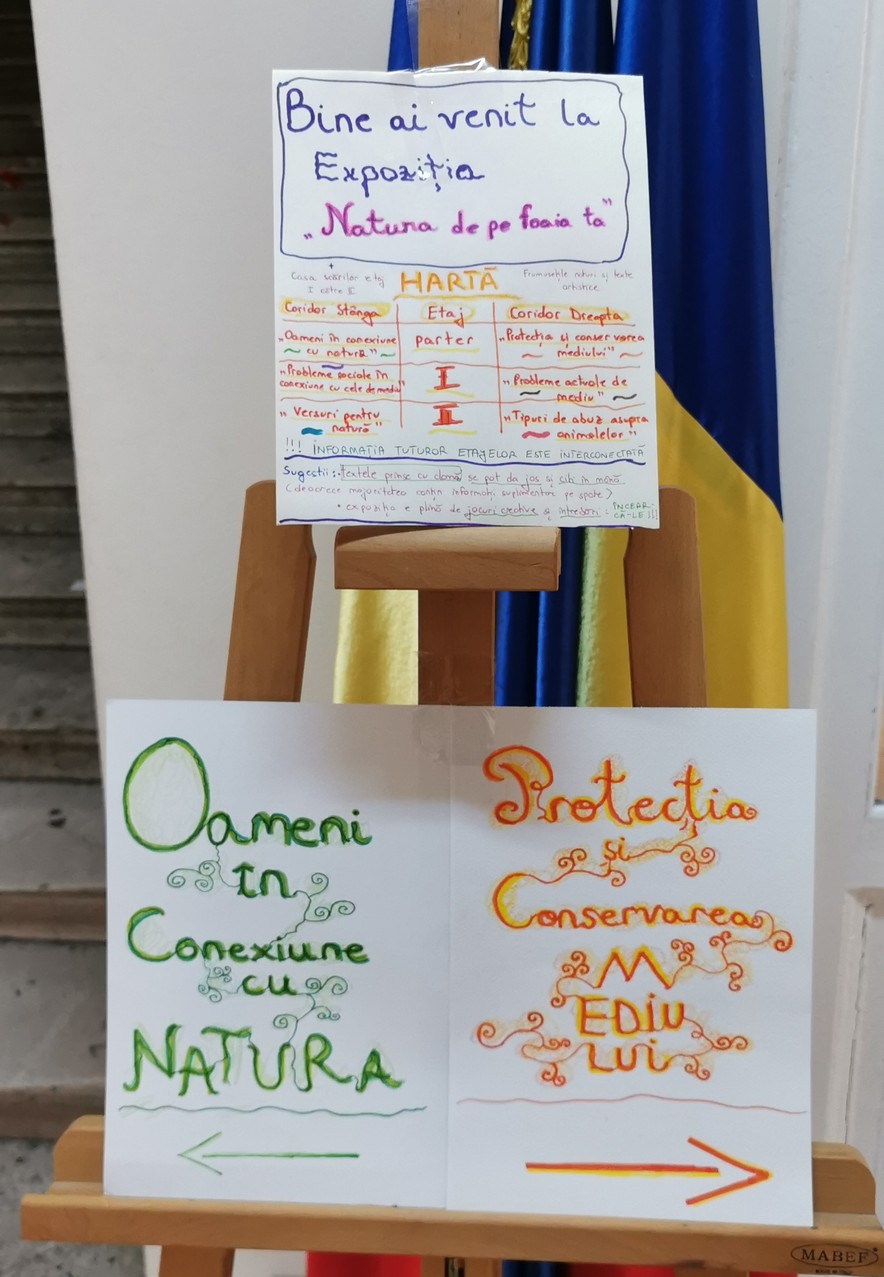 Bine ai venit la
Expoziția
„Natura de pe foaia ta”
Casa scărilor etaj
I către II
HARTĂ
Frumusețile naturii și texte
artistice
Coridor Stânga
Etaj
Coridor Dreapta
„Oameni în conexiune
cu natură”
parter
„Protecția și conservarea
mediului”
„Probleme sociale în
conexiune cu cele de mediu”
I
„Probleme actuale de
mediu”
„Versuri pentru
natură”
I
„Tipuri de abuz asupra
animalelor”
!!! INFORMAȚIA TUTUROR ETAJELOR ESTE INTERCONECTATĂ
Sugestii: • textele prinse cu clamă se pot da jos și citi în mână
(deoarece majoritatea conțin informații suplimentare pe spate)
• expoziția e plină de jocuri creative și întrebări: ÎNCEAR-
CĂ-LE!!!
Oameni
în
Conexiune
cu
NATURA
Protecția
și
Conservarea
M
EDIU
LUI
MABEF